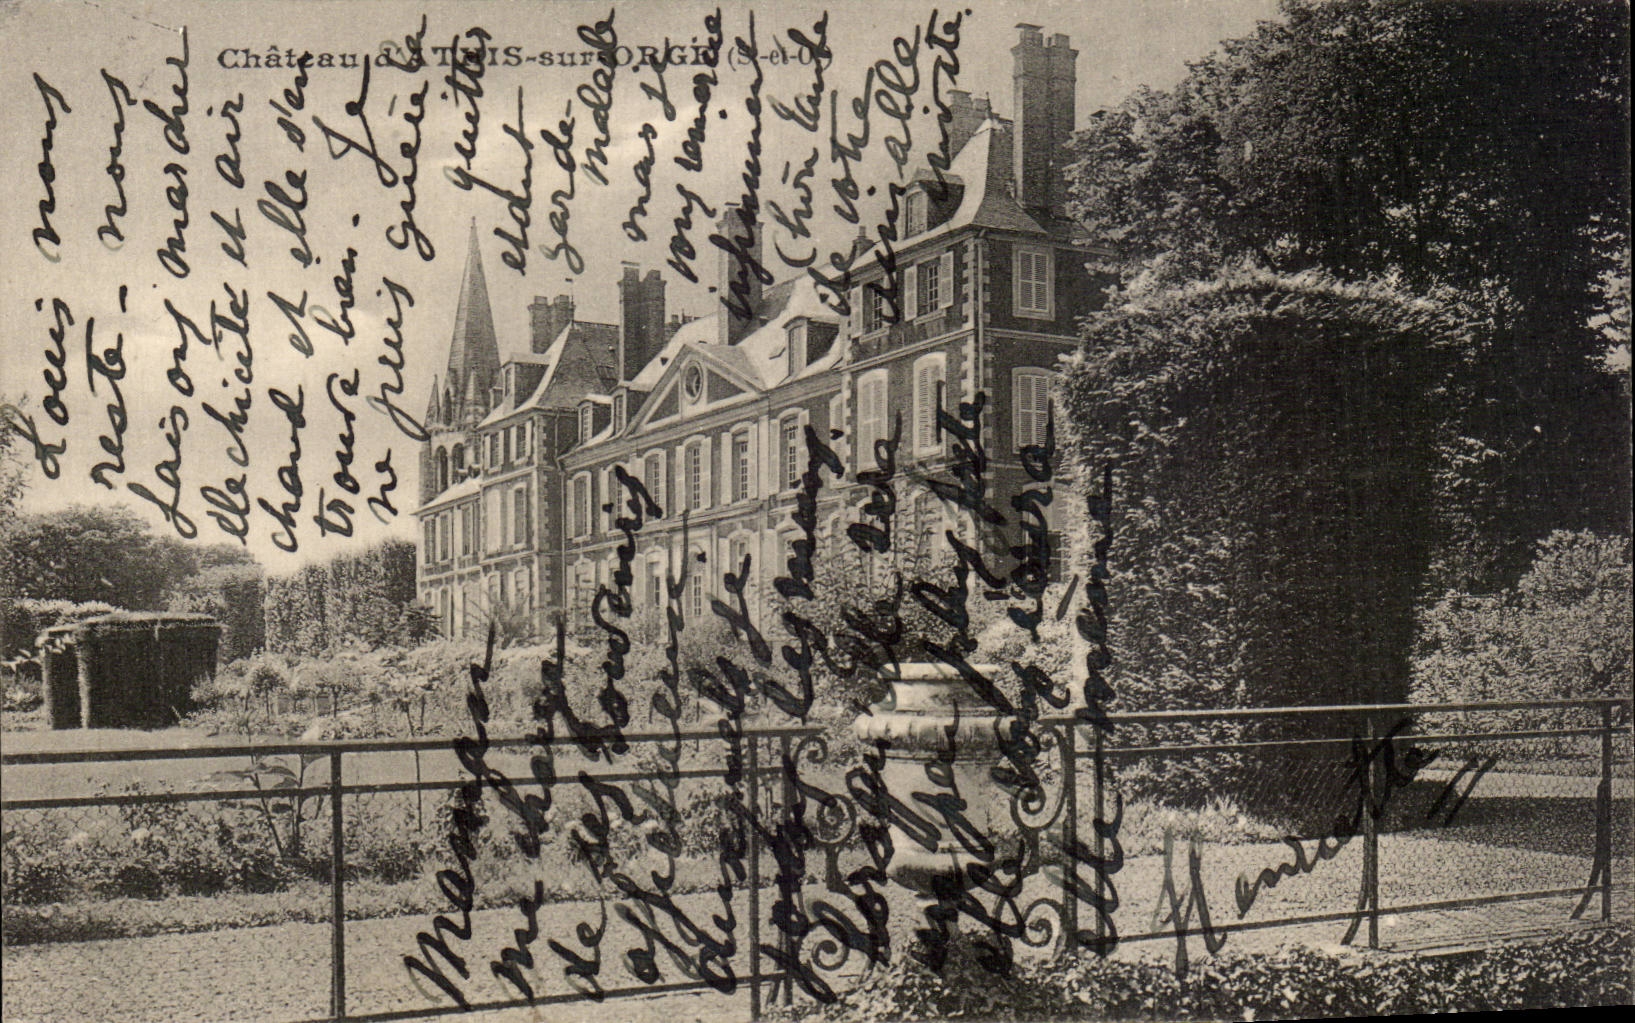 Château d'ATHIS-sur-ORGE (S-et-O.)
Louis nous
reste - nous
faisons marcher
électricité et air
chaud et elle s'en
trouve bien. Je
ne puis guère la
quitter
étant
garde-
malade
mais je
vous remercie
infiniment
(chère tante
de votre
aimable
invite.
Maman
me charge
de ses souvenirs
affectueux
auxquels je
joins les miens.
Lorsqu'elle sera
un peu plus forte
elle vous écrira
elle même